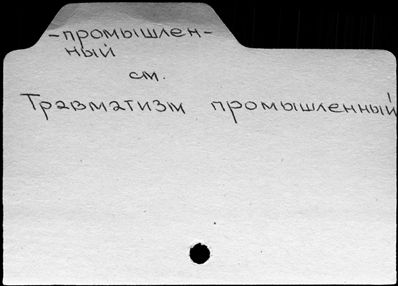 -промышлен-
ный
см.
Травматизм промышленный